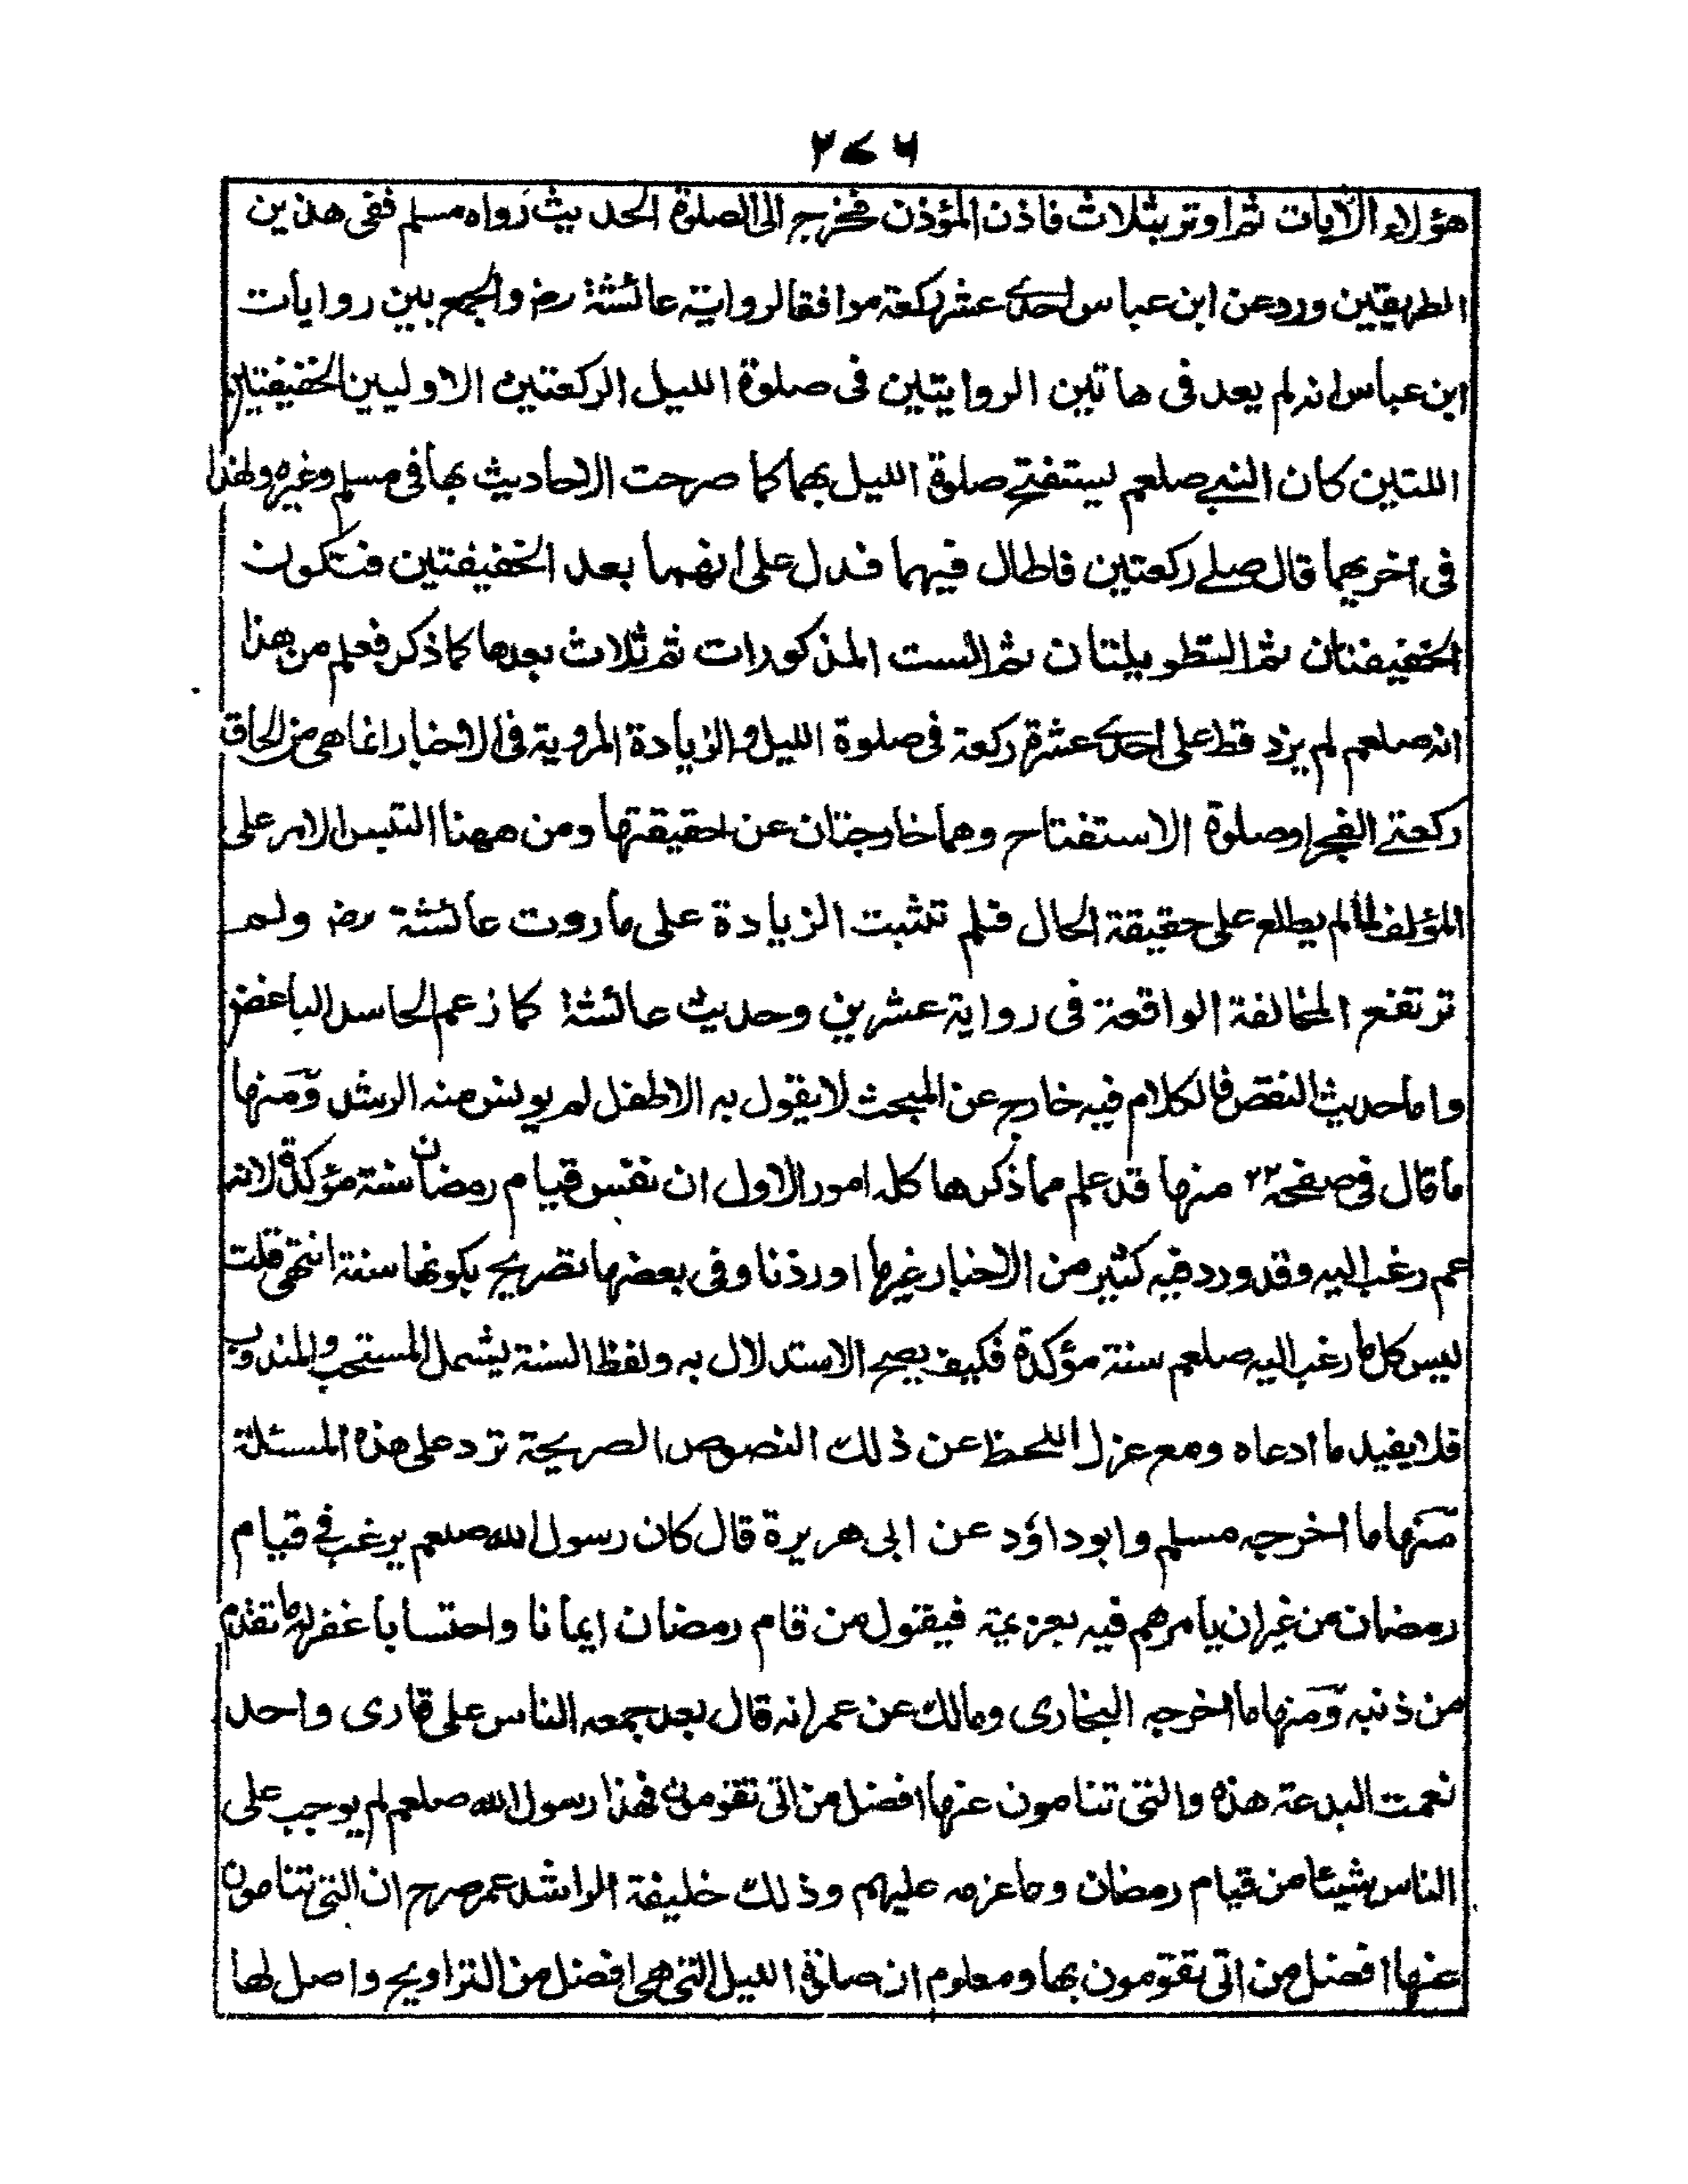 ٢٧٦
هؤلاء الآيات ثم اوتر بثلاث فاذن المؤذن فخرج الى الصلوة الحديث رواه مسلم ففى هذين
الطريقين ورد عن ابن عباس احدى عشر ركعة موافقا لرواية عائشة رضـ والجمع بين روايات
ابن عباس انه لم يعد فى هاتين الروايتين فى صلوة الليل الركعتين الاوليين الخفيفتين
اللتين كان النبى صلعم يستفتح صلوة الليل بهما كما صرحت الاحاديث بها فى مسلم وغيره ولهذا
فى اخريهما قال صلى ركعتين فاطال فيهما فدل على انهما بعد الخفيفتين فتكون
الخفيفتان ثم الطويلتان ثم الست المذكورات ثم ثلاث بعدها كما ذكر فعلم من هذا
انه صلعم لم يزد قط على احدى عشرة ركعة فى صلوة الليل والزيادة المروية فى الاخبار انما هى من الحاق
ركعتى الفجر او صلوة الاستفتاح وهما خارجتان عن حقيقتها ومن ههنا التبس الامر على
المؤلف لما لم يطلع على حقيقة الحال فلم تثبت الزيادة على ما روت عائشة رضـ ولم
ترتفع المخالفة الواقعة فى رواية عشرين وحديث عائشة كما زعم الحاسد الباغض
واما حديث النقص فالكلام فيه خارج عن المبحث لا يقول به الا طفل لم يونس منه الرشد ومنها
ما قال فى صفحه ٢٢ منها قد علم مما ذكرها كله امور الاول ان نفس قيام رمضان سنة مؤكدة لانه
عم رغب اليه وقد ورد فيه كثير من الاخبار غيرها اوردنا وفى بعضها تصريح بكونها سنة انتهى قلت
ليس كل ما رغب اليه صلعم سنة مؤكدة فكيف يصح الاستدلال به ولفظ السنة يشمل المستحب والمندوب
فلا يفيد ما ادعاه ومع عزل اللحظ عن ذلك النصوص الصريحة ترد على هذه المسئلة
منها ما اخرجه مسلم وابو داؤد عن ابى هريرة قال كان رسول الله صلعم يرغب فى قيام
رمضان من غير ان يامرهم فيه بعزيمة فيقول من قام رمضان ايمانا واحتسابا غفر له ما تقدم
من ذنبه ومنها ما اخرجه البخارى ومالك عن عمر انه قال بعد جمعه الناس على قارى واحد
نعمت البدعة هذه والتى تنامون عنها افضل من التى تقومون فهذا رسول الله صلعم لم يوجب على
الناس شيئا من قيام رمضان وما عزمه عليهم وذلك خليفة الراشد عمر صرح ان التى تنامون
عنها افضل من اتى تقومون بها ومعلوم ان صلوة الليل التى هى افضل من التراويح واصل لها